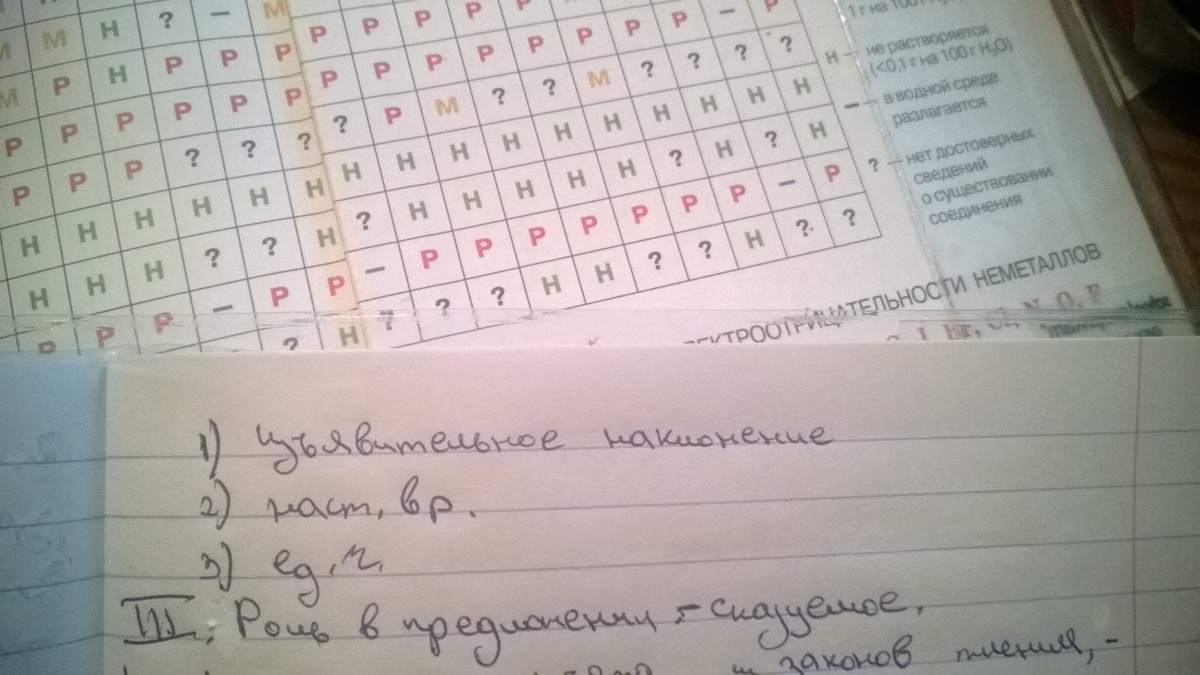 М М Н ? – М Р Р Р Р Р
М Р Н Р Р Р Р Р Р Р Р Р Р – Р
Р Р Р Р Р Р ? Р М ? ? М ? ? ? ?
Р Р Р ? ? ? Н Н Н Н Н Н Н Н Н Н
Н Н Н Н Н Н ? Н Н Н Н ? Н ? Н
Н Н Н ? ? Н Р – Р Р Р Р Р Р – Р
Р Р Р – Р Р ? ? ? Н Н ? ? Н ? ?
? Н
1 г на 100 г
Н — не растворяется
(<0,1 г на 100 г H₂O)
— – в водной среде
разлагается
? — нет достоверных
сведений
о существовании
соединения
ЭЛЕКТРООТРИЦАТЕЛЬНОСТИ НЕМЕТАЛЛОВ
I, Br, Cl, N, O, F
1) Изъявительное наклонение
2) наст, вр.
3) ед, ч,
III, Роль в предложении,- сказуемое,
законов тления, -